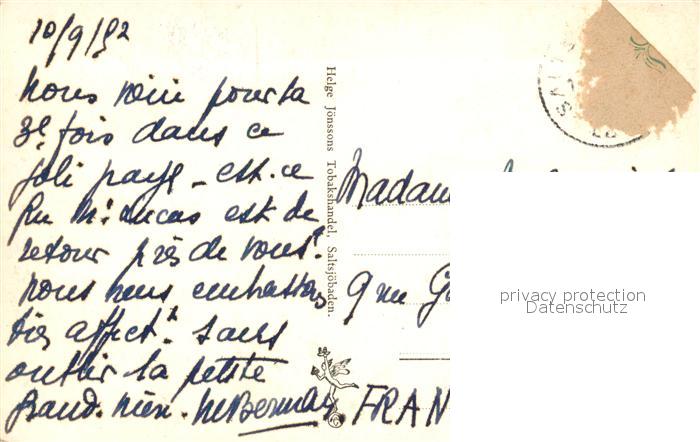 10/9/52
Nous voici pour la
3e. fois dans ce
joli pays - est-ce
que Mr. Lucas est de
retour près de vous?
nous vous embrassons
très affectt. sans
oublier la petite
Helge Jönssons Tobakshandel, Saltsjöbaden.
Madam
9 rue G
FRAN
privacy protection
Datenschutz